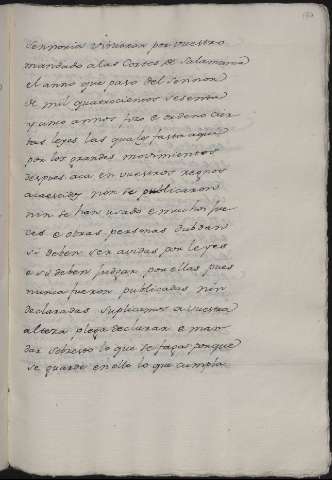 sennoria vinieran por vuestro
mandado a las Cortes de Salamanca
el anno que paso del sennor
de mil quatrocientos sesenta
y cinco annos fizo e ordeno cier
tas leyes las quales fasta aqui
por los grandes movimientos
despues aca en vuestros regnos
acaescidos non se publicaron
nin se han usado e muchos jue
ces e otras personas dubdan
si deben ser avidas por leyes
e si deben judgar por ellas pues
nunca fueron publicadas nin
declaradas suplicamos a vuestra
alteza plega declarar e man
dar sobresto lo que se faga porque
se guarde en ello lo que cumpla